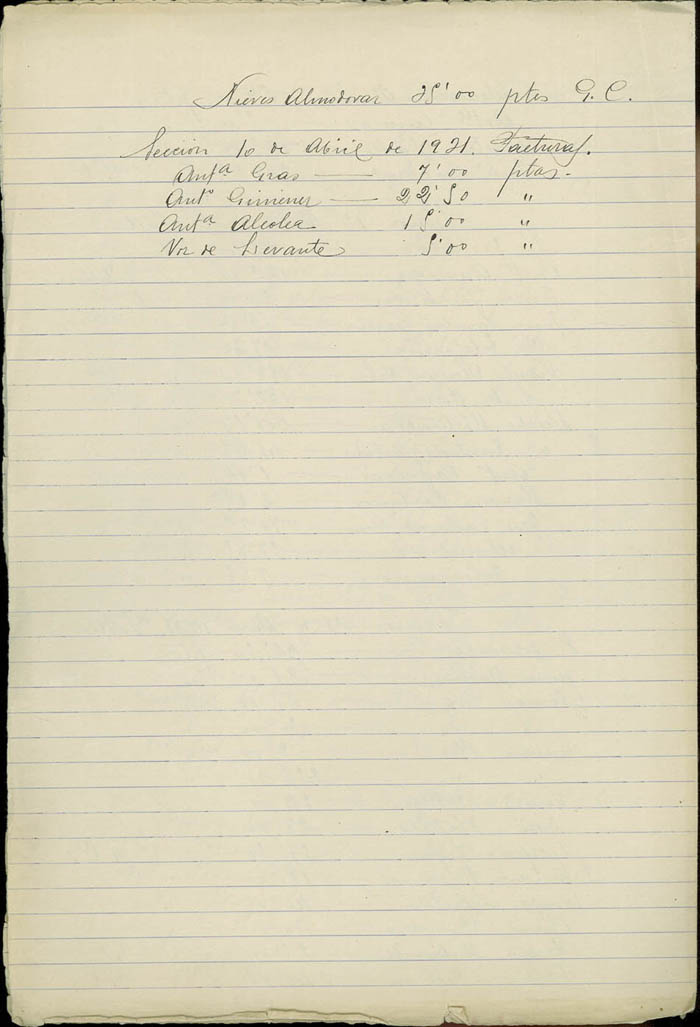 Nieves Almodovar 25'00 ptes G. C.
Seccion 10 de Abril de 1921. Facturas.
Antª Gras — 7'00 ptas.
Antº Gimenez — 22'50 "
Antª Alcolea 15'00 "
Voz de Levante 5'00 "